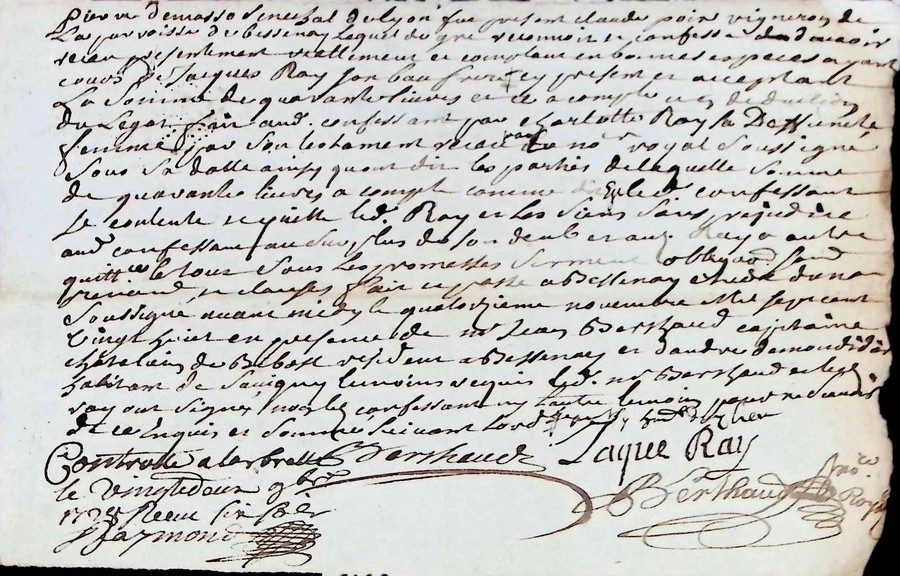 Pierre demasso Senechal de lyon fut present claude poin vigneron de
La parroisse de bessenay Lequel de gre reconnoit et confesse davoir
receu presentement reellement et comptant en bonnes especes ayant
cours de Jacques Ray son beau frere cy present et acceptant
La Somme de quarante livres et ce a compte et en deduction
du Legat fait aud. confessant par charlotte Ray sa deffuncte
femme par son testament receu par le no.re royal Soussigné
Sous Sa datte ainsy quont dit les parties de laquelle Somme
de quarante livres a compte comme led. confessant
Se contente et quitte led. Ray et les Siens Sans prejudice
aud. confessant au Surplus de son deub et aud. Ray a autre
quitt.ce le tout Sous les promesses Serment obligaon Soub
renoncia et clauses fait et passé a Bessenay etude du no.re
Soussigné avant midy le quatorzieme novembre Mil sept cent
vingt huit en presence de mr Jean Berthaud capitaine
chatelain de resident a Bessenay et d'andre
habitant de Savigny temoins requis led. mr Berthaud et led.
ray ont signé non le confessant ny lautre temoin pour ne scavoir
de ce Enquis et Sommé Suivant Lord.
Controllé a larbrelle Berthaud Jaque Ray
le vingtedeux 9bre Berthaud
1728 Receu six s.
Raymond